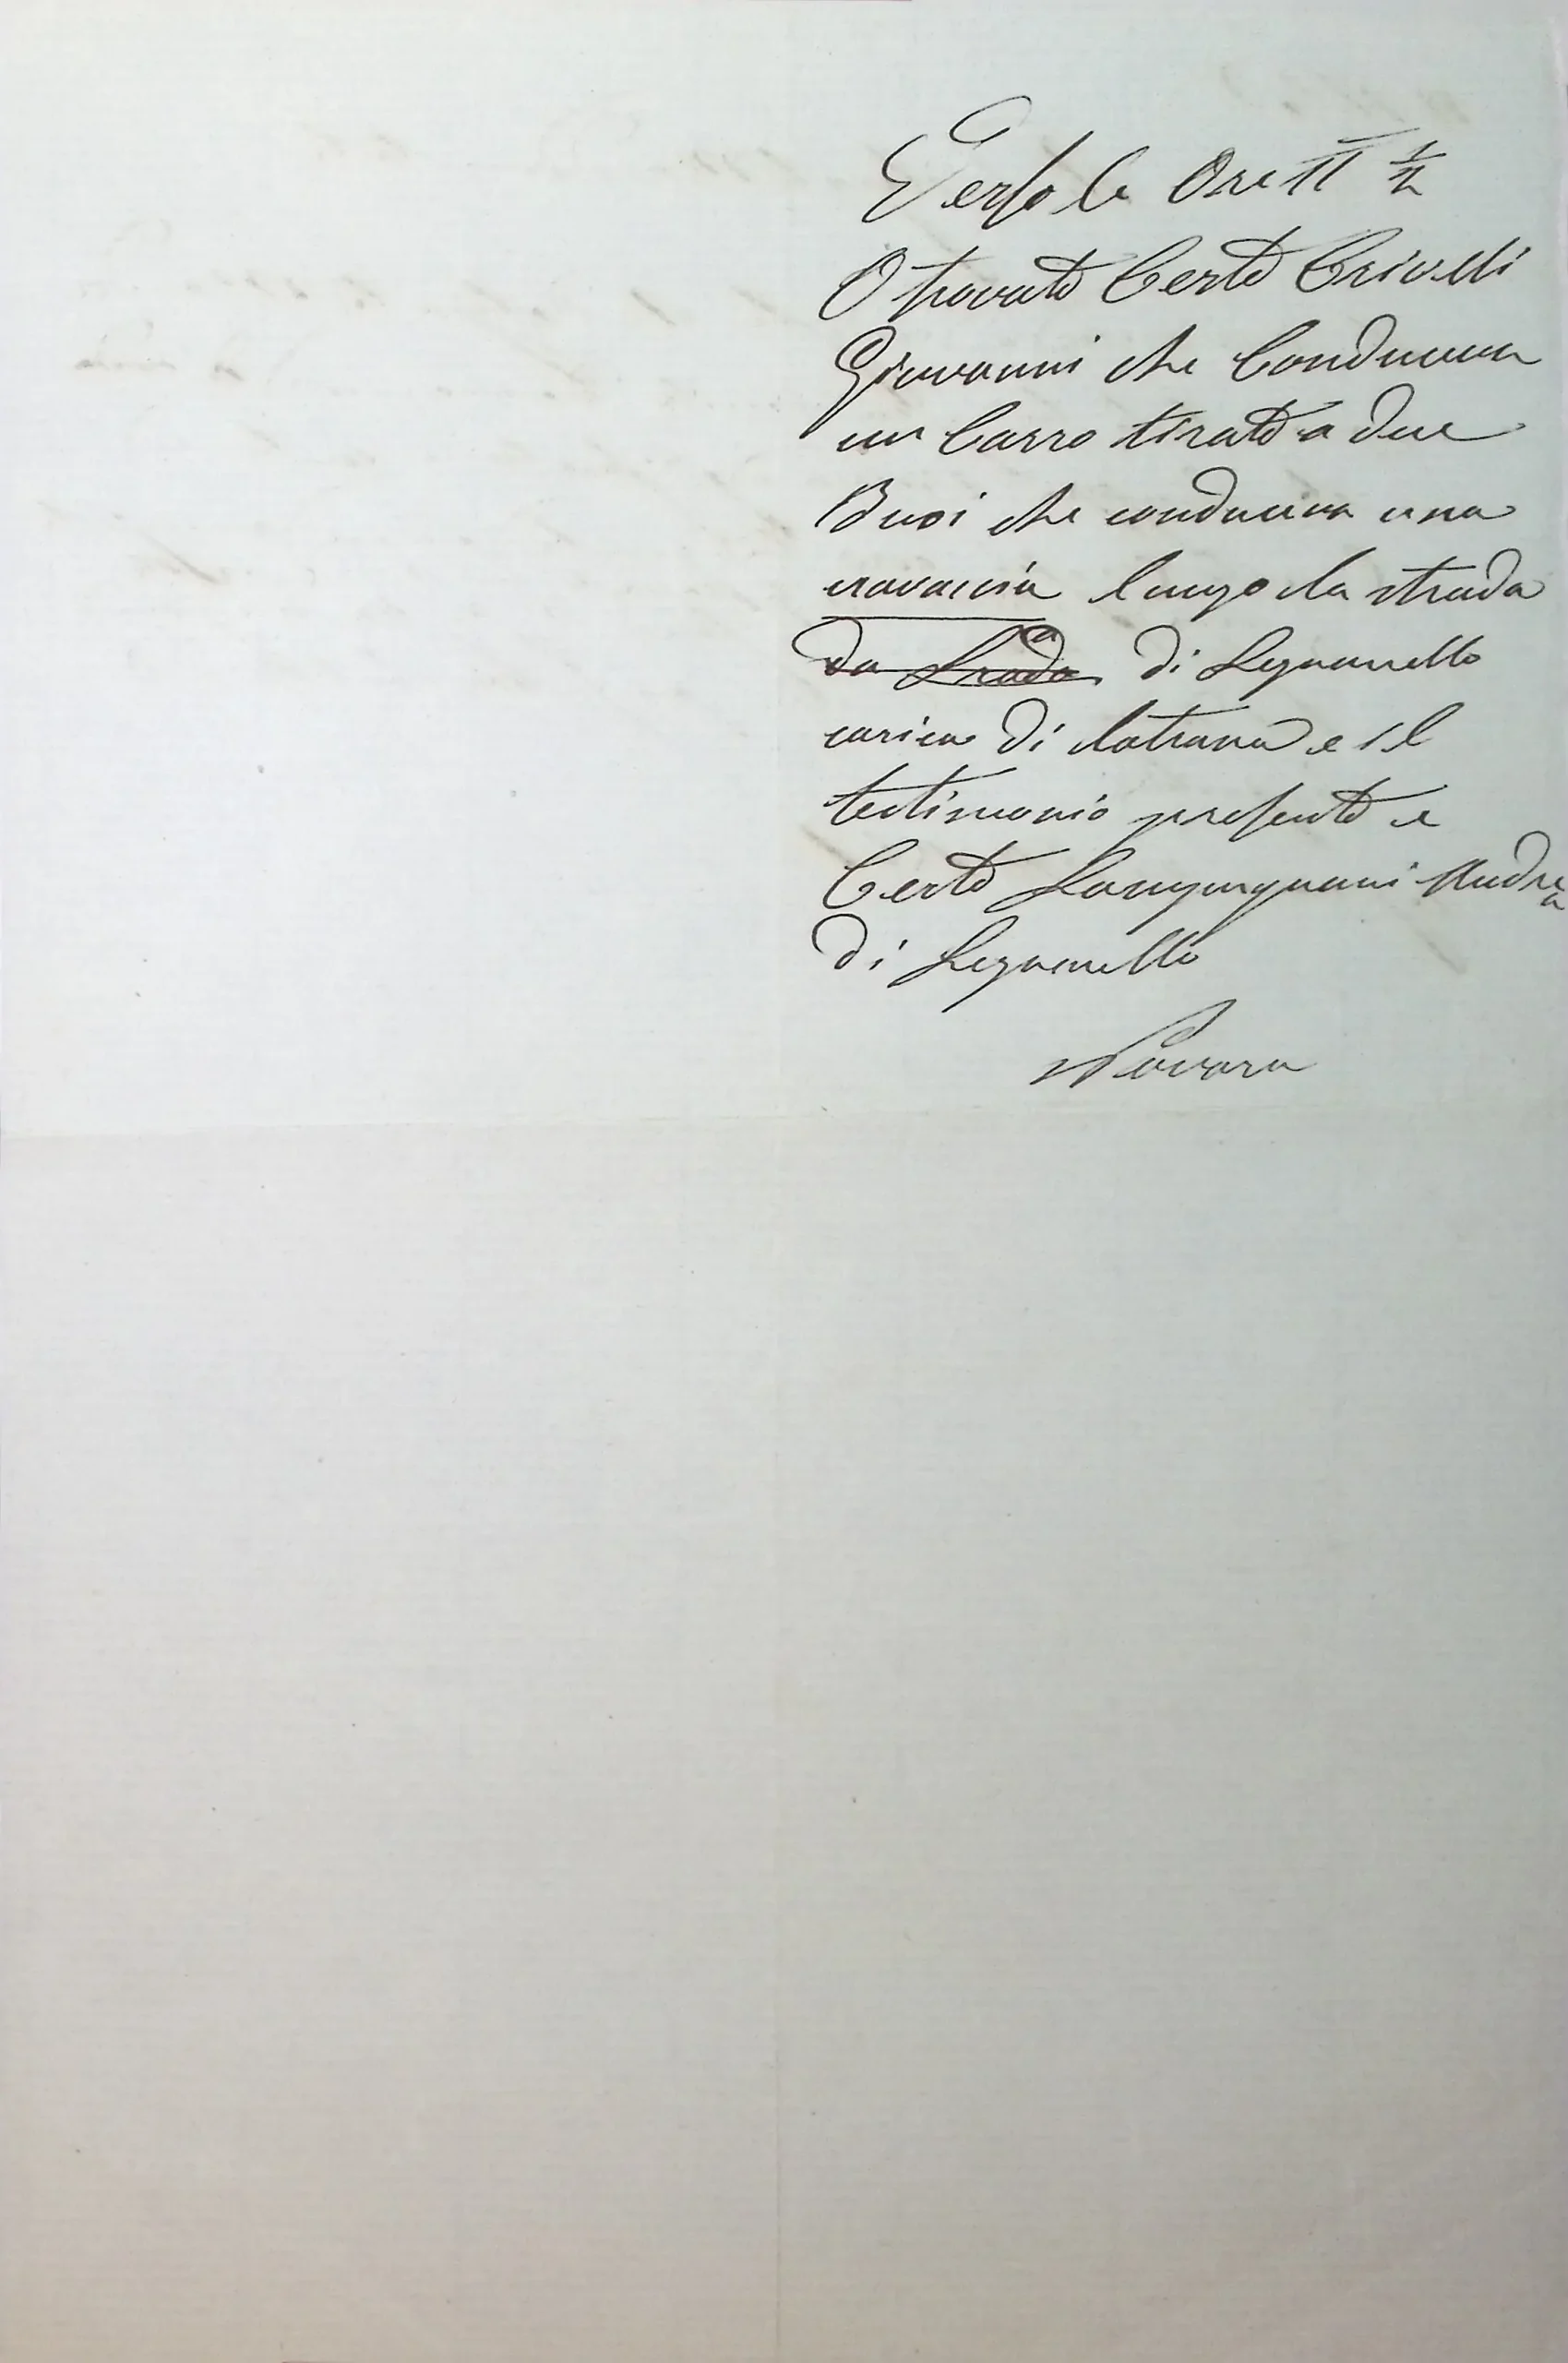 Verso le Ore 11 1/2
O trovato Certo Crivelli
Giovanni che Conduceva
un Carro tirato a due
Buoi che conduceva una
navascia lungo la strada
da Strada di Legnanello
carica di latrina e il
testimonio presente e
Certo Lampugnani Andrea
di Legnanello
Novara